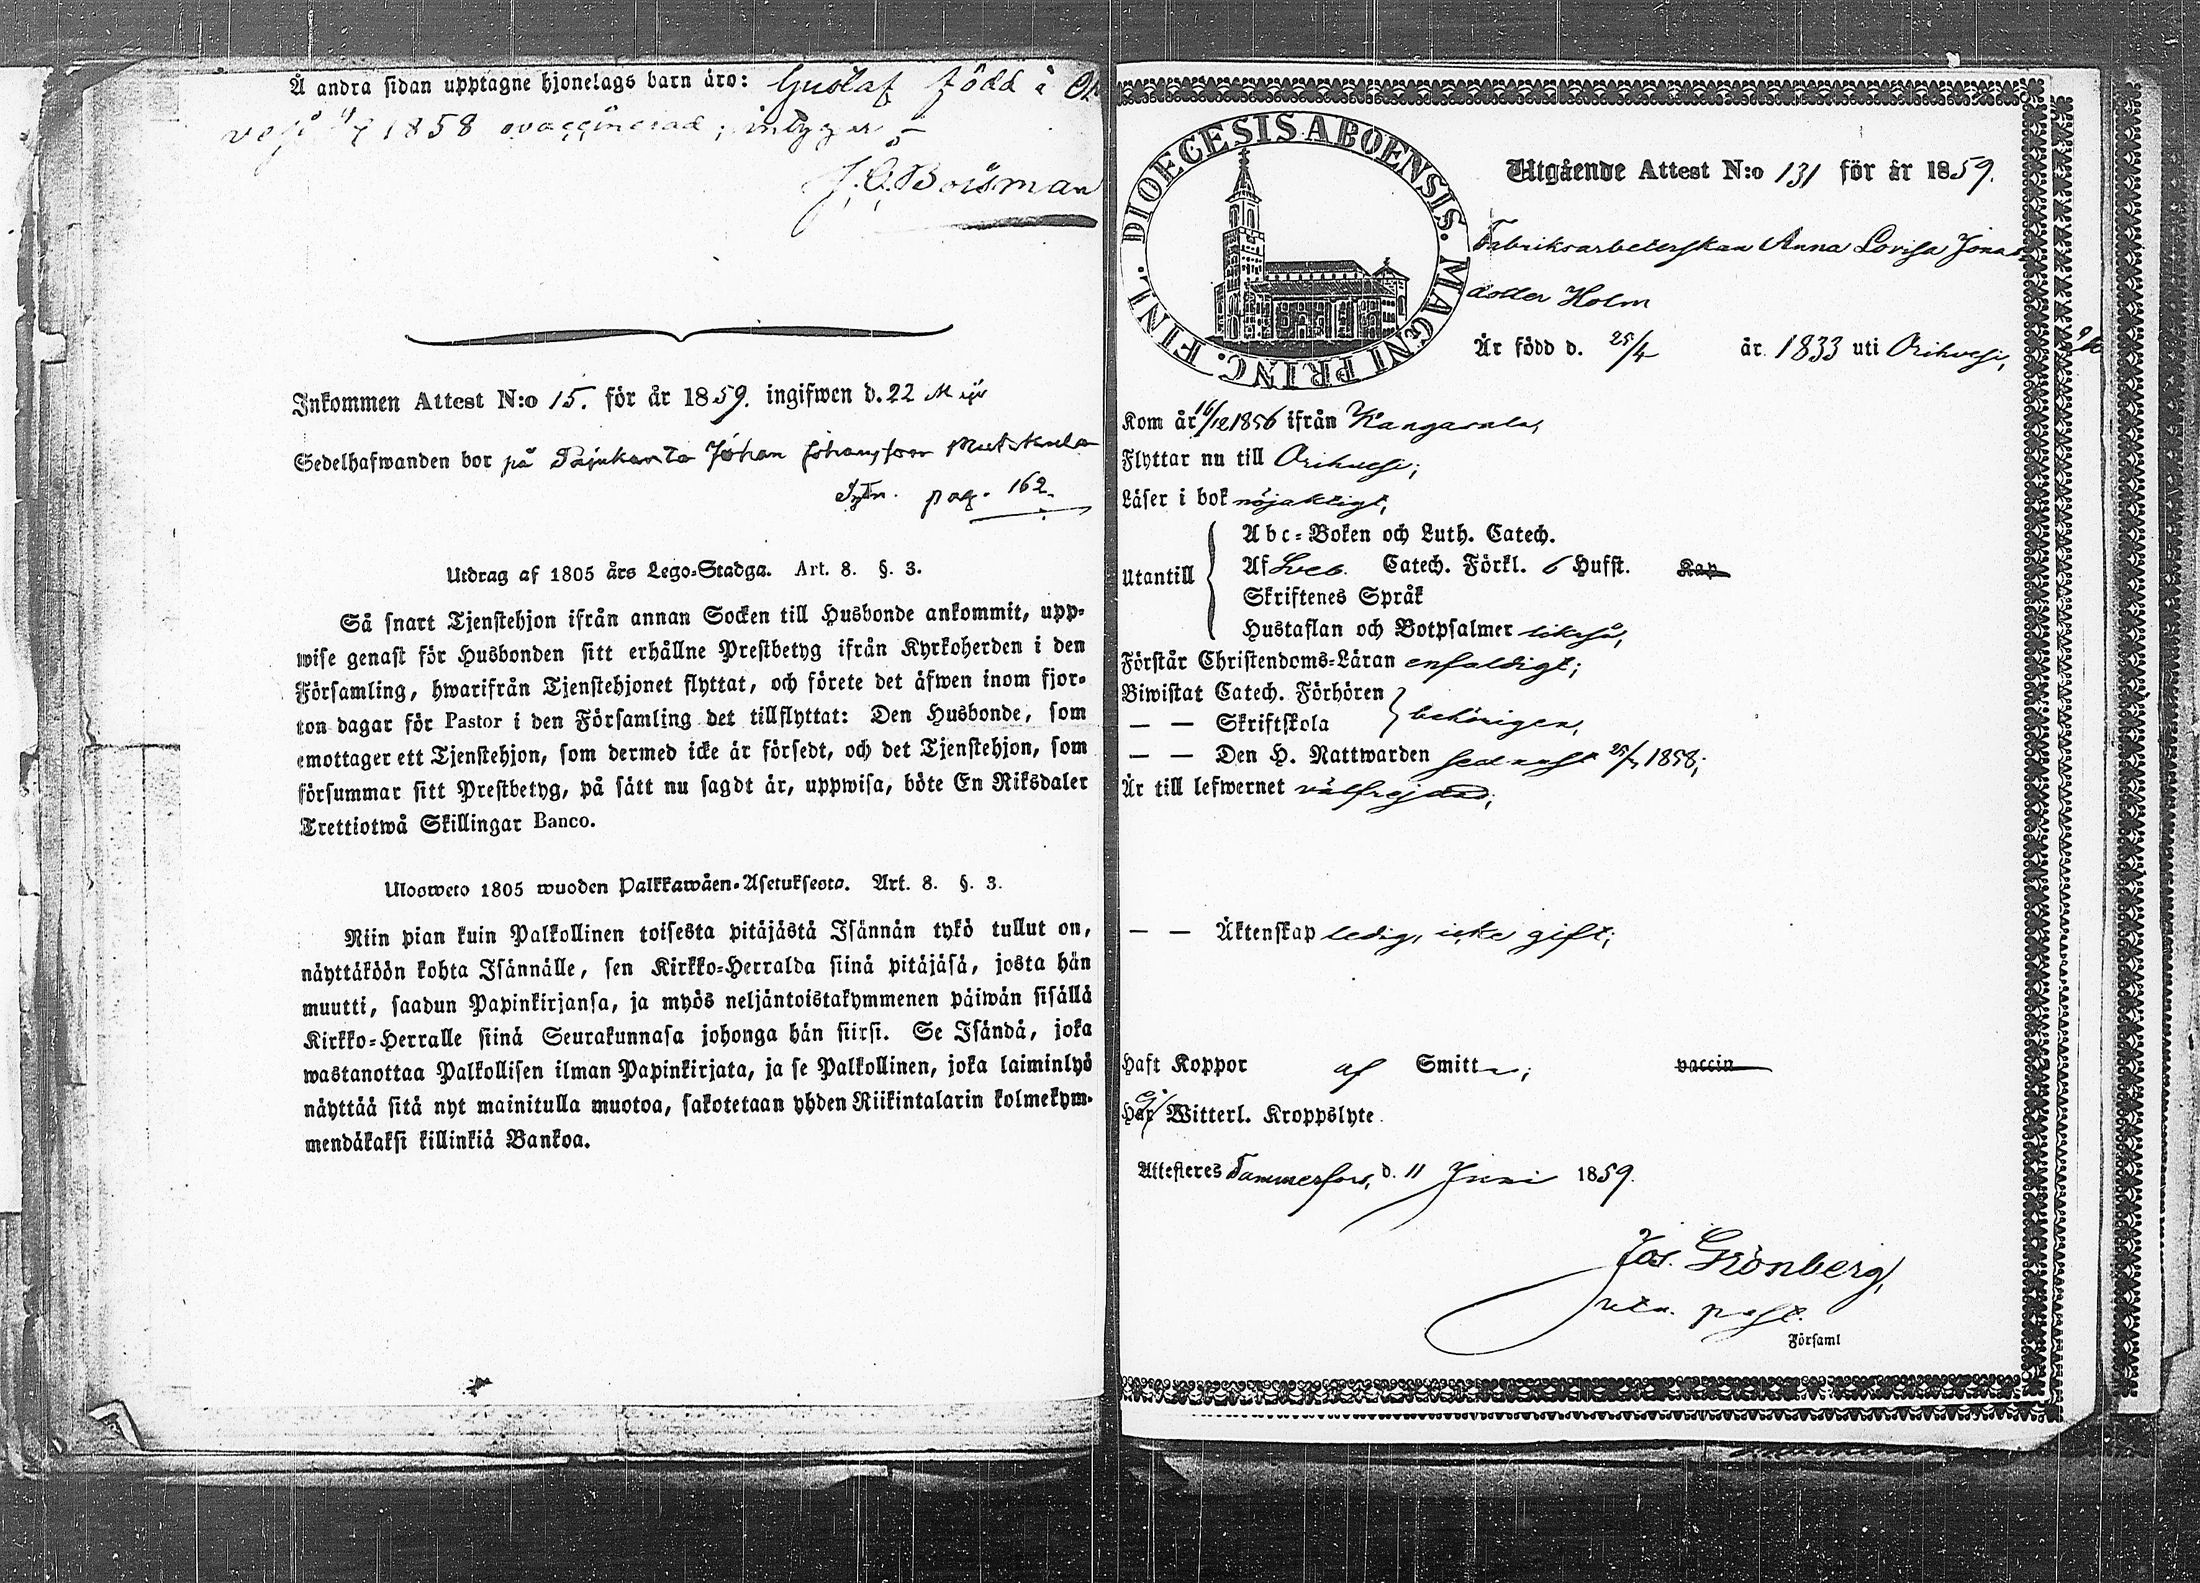 Å andra sidan upptagne hjonelags barn äro: Gustaf född i
1858 ovaccinerad; intygar
J. O. Boisman
Inkommen Attest N:o 15. för år 1859. ingifwen d. 22 Maji
Sedelhafwanden bor på Johan Johansson
pag. 162.
Utdrag af 1805 års Lego-Stadga. Art. 8. §. 3.
Så snart Tjenstehjon ifrån annan Socken till Husbonde ankommit, upp-
wise genast för Husbonden sitt erhållne Prestbetyg ifrån Kyrkoherden i den
Församling, hwarifrån Tjenstehjonet flyttat, och förete det äfwen inom fjor-
ton dagar för Pastor i den Församling det tillflyttat: Den Husbonde, som
emottager ett Tjenstehjon, som dermed icke är försedt, och det Tjenstehjon, som
försummar sitt Prestbetyg, på sätt nu sagdt är, uppwisa, böte En Riksdaler
Trettiotwå Skillingar Banco.
Ulosweto 1805 wuoden Palkkawäen-Asetuksesta. Art. 8. §. 3.
Niin pian kuin Palkollinen toisesta pitäjästä Isännän tykö tullut on,
näyttäköön kohta Isännälle, sen Kirkko-Herralda siinä pitäjäsä, josta hän
muutti, saadun Papinkirjansa, ja myös neljäntoistakymmenen päiwän sisällä
Kirkko-Herralle siinä Seurakunnasa johonga hän siirsi. Se Isändä, joka
wastanottaa Palkollisen ilman Papinkirjata, ja se Palkollinen, joka laiminlyö
näyttää sitä nyt mainitulla muotoa, sakotetaan yhden Riikintalarin kolmekym-
mendäkaksi killinkiä Bankoa.
DIOECESIS ABOENSIS. MAGNI PRINC. FINL.
Utgående Attest N:o 131 för år 1859.
Fabriksarbeterskan Anna Lovisa Jonas
dotter Holm
Är född d. 25/4 år 1833 uti Orihvesi,
Kom år 16/12 1856 ifrån Kangasala,
Flyttar nu till Orihvesi;
Läser i bok nöjaktigt,
Utantill
Abc-Boken och Luth. Catech.
Af Sveb. Catech. Förkl. 6 Hufst. Kap
Skriftenes Språk
Hustaflan och Botpsalmer likaså,
Förstår Christendoms-Läran enfaldigt;
Biwistat Catech. Förhören
— — Skriftskola behörigen,
— — Den H. Nattwarden sednast 1858;
Är till lefwernet välfrejdad;
— — Äktenskap ledig, icke gift;
Haft Koppor af Smitta; vaccin
Har ej Witterl. Kroppslyte.
Attesteres Tammerfors, d. 11 Juni 1859.
Jos. Grönberg,
past.
Församl